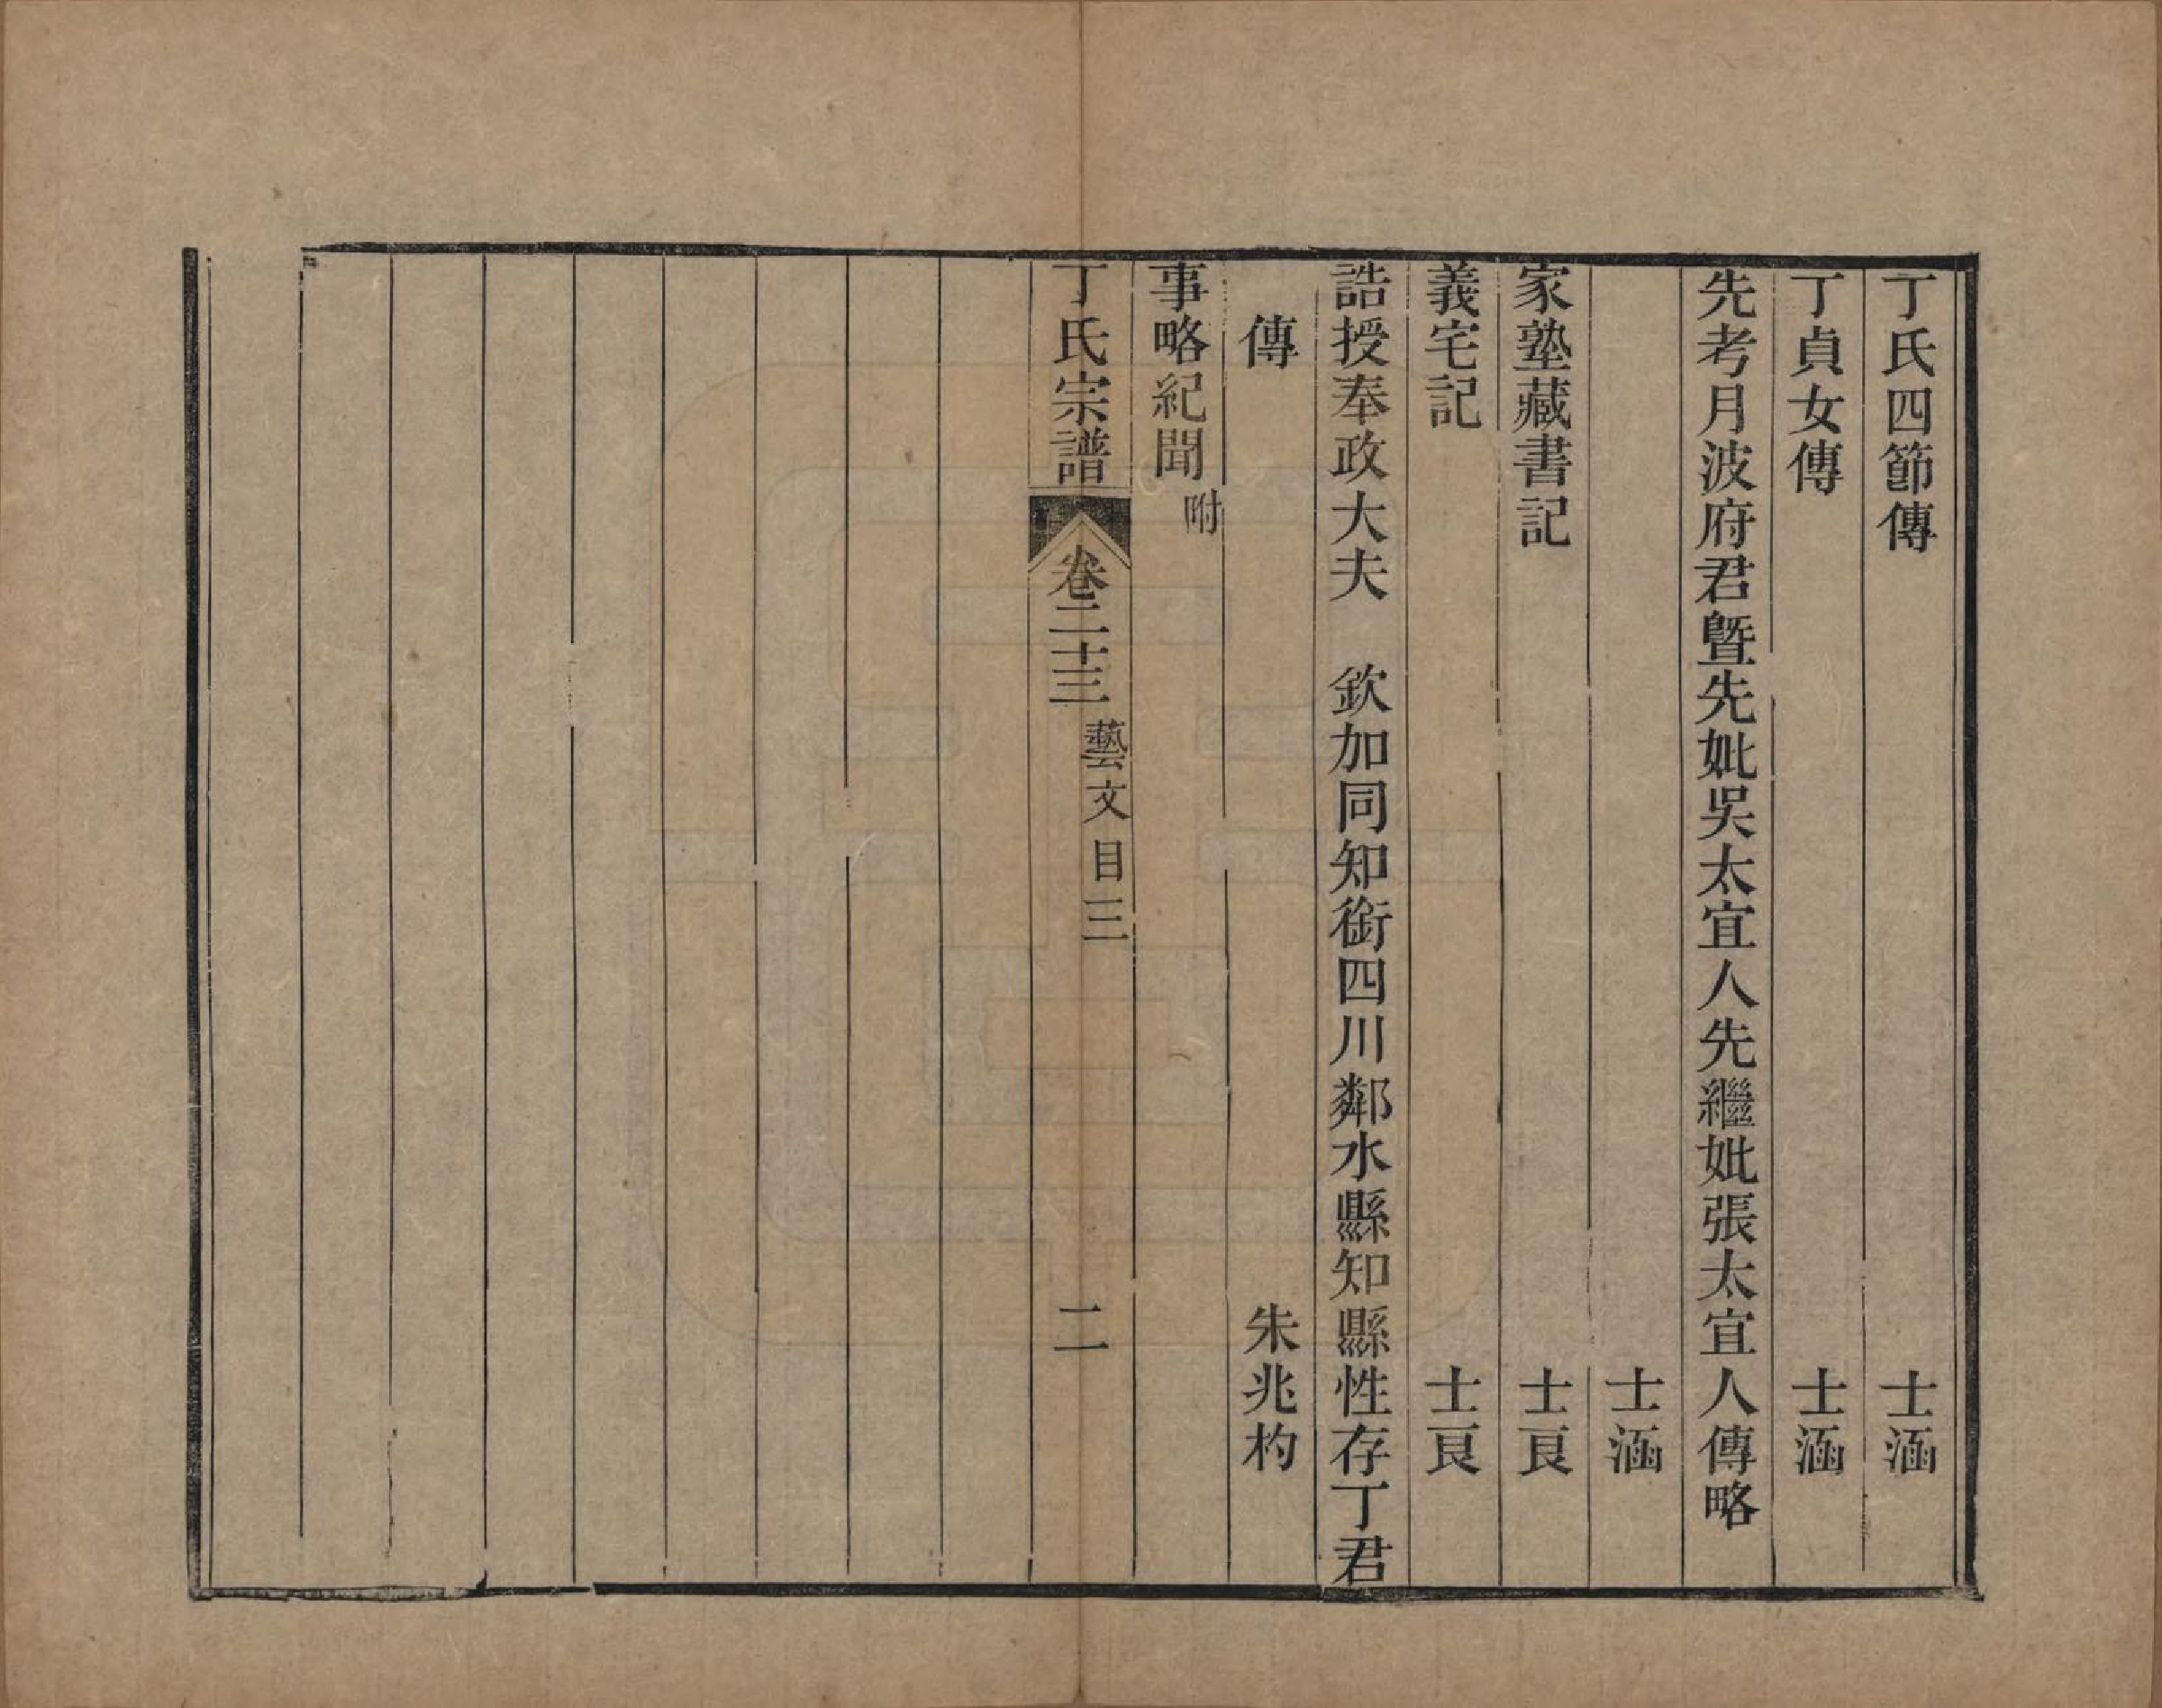 丁氏四節傳　士涵
丁貞女傳　士涵
先考月波府君曁先妣吳太宜人先繼妣張太宜人傳略
士涵
家塾藏書記　士良
義宅記　士良
誥授奉政大夫　欽加同知銜四川鄰水縣知縣性存丁君
傳　朱兆杓
事略紀聞附
丁氏宗譜　卷二十三　藝文目三　二